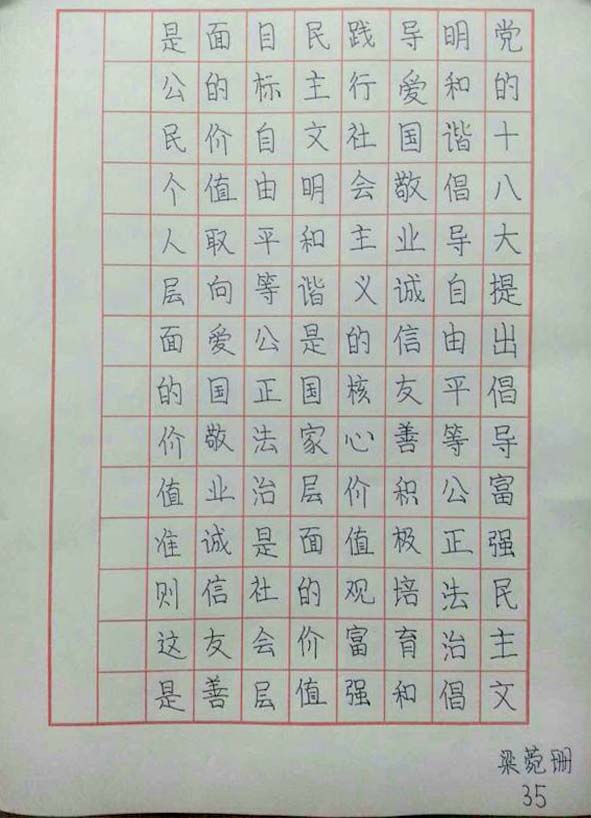 党的十八大提出倡导富强民主文
明和谐倡导自由平等公正法治倡
导爱国敬业诚信友善积极培育和
践行社会主义的核心价值观富强
民主文明和谐是国家层面的价值
目标自由平等公正法治是社会层
面的价值取向爱国敬业诚信友善
是公民个人层面的价值准则这是
梁菀珊
35